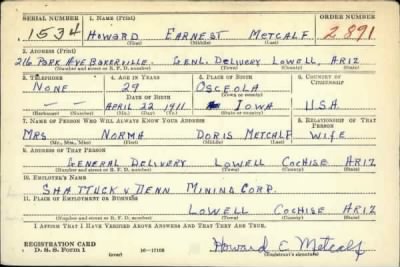 SERIAL NUMBER 1. NAME (Print) ORDER NUMBER
1534 HOWARD EARNEST METCALF 2891
(First) (Middle) (Last)
2. ADDRESS (Print)
216 PARK AVE BAKERVILLE. GENL. DELIVERY LOWELL, ARIZ
(Number and street or R. F. D. number) (Town) (County) (State)
3. TELEPHONE 4. AGE IN YEARS 5. PLACE OF BIRTH 6. COUNTRY OF CITIZENSHIP
NONE 29 OSCEOLA
DATE OF BIRTH (Town or county)
— — APRIL 22 1911 IOWA U.S.A.
(Exchange) (Number) (Mo.) (Day) (Yr.) (State or country)
7. NAME OF PERSON WHO WILL ALWAYS KNOW YOUR ADDRESS 8. RELATIONSHIP OF THAT PERSON
MRS NORMA DORIS METCALF WIFE
(Mr., Mrs., Miss) (First) (Middle) (Last)
9. ADDRESS OF THAT PERSON
GENERAL DELIVERY LOWELL COCHISE ARIZ
(Number and street or R. F. D. number) (Town) (County) (State)
10. EMPLOYER'S NAME
SHATTUCK & DENN MINING CORP.
11. PLACE OF EMPLOYMENT OR BUSINESS
LOWELL COCHISE ARIZ
(Number and street or R. F. D. number) (Town) (County) (State)
I AFFIRM THAT I HAVE VERIFIED ABOVE ANSWERS AND THAT THEY ARE TRUE.
REGISTRATION CARD
D. S. S. Form 1 (over) 16—17105 Howard E Metcalf
(Registrant's signature)